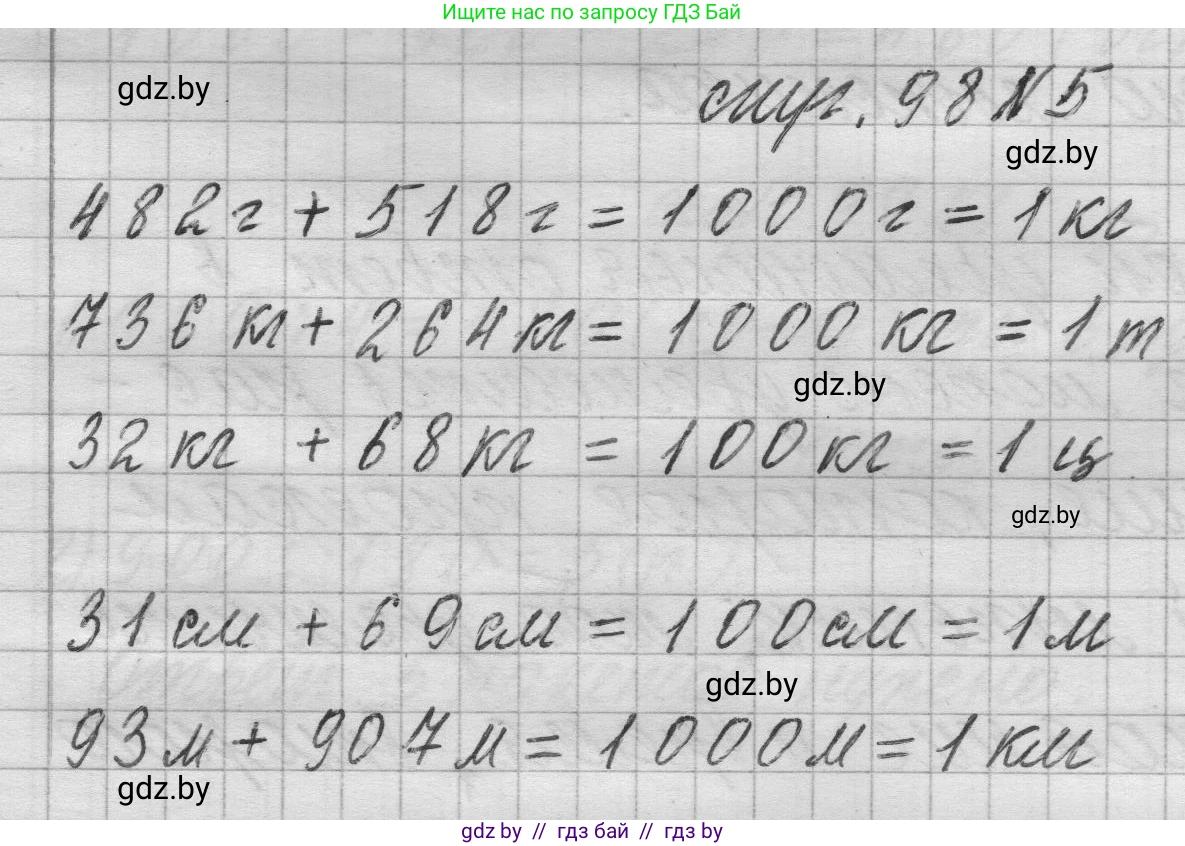 Ищите нас по запросу ГДЗ Бай
gdz.by
стр. 98 №5
gdz.by
482г + 518г = 1000г = 1кг
736 кг + 264кг = 1000 кг = 1 т
gdz.by
32 кг + 68кг = 100кг = 1 ц
gdz.by
31см + 69см = 100см = 1м
gdz.by
93м + 907м = 1000м = 1 км
gdz.by
gdz by // гдз бай // гдз by